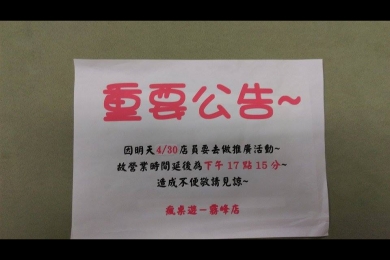 重要公告~
因明天4/30店員要去做推廣活動~
故營業時間延後為下午17點15分~
造成不便敬請見諒~
瘋桌遊－霧峰店